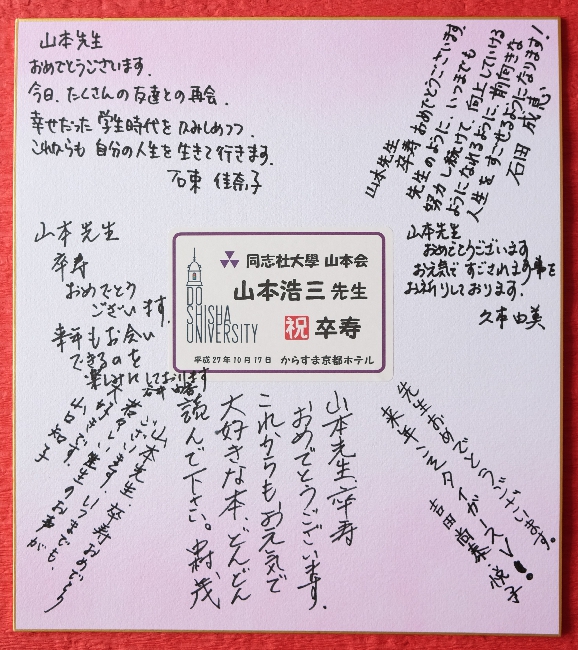 山本先生
おめでとうございます。
今日、たくさんの友達との再会、
幸せだった学生時代をかみしめつつ、
これからも自分の人生を生きて行きます。
石東 佳奈子
山本先生
卒寿おめでとうございます。
先生のように、いつまでも
努力し続けて、向上していける
ようになれるように、前向きな
人生をすごせるようになります！
石田 成恵
山本先生
卒寿
おめでとう
ございます。
来年もお会い
できるのを
楽しみにしております
山本先生
おめでとうございます
お元気ですごされます事を
お祈りしております。
久本由美
同志社大學 山本会
山本浩三 先生
祝 卒寿
DO
SHISHA
UNIVERSITY
平成27年10月17日 からすま京都ホテル
山本先生、卒寿おめでとう
ございます。いつまでも、
若々しい先生のお声が
山口知子
山本先生、卒寿
おめでとうございます。
これからもお元気で
大好きな本、どんどん
読んで下さい。
先生おめでとうございます。
来年こそタイガースV！
吉田 尚泰・悦子